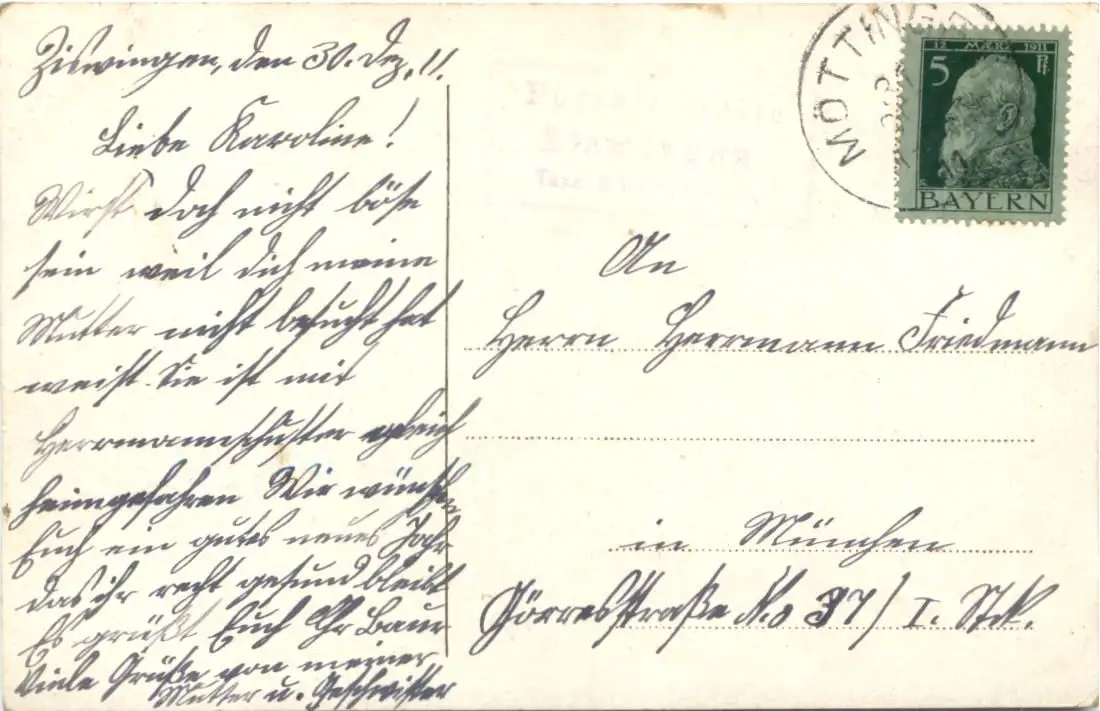 Ziswingen, den 30. Dez. 11.
Liebe Karoline!
Wirst doch nicht böse
sein weil dich meine
Mutter nicht besucht hat
weist Sie ist mit
Herrmannschuster gleich
heimgefahren Wir wünschen
Euch ein gutes neues Jahr
das ihr recht gesund bleibt
Es grüßt Euch Chr Baur
Viele Grüße von meiner
Mutter u. Geschwister
MÖTTINGEN
12. MÄRZ 1911
5 Pf
BAYERN
An
Herrn Herrmann Friedmann
in München
Görresstraße No 37/I. Stck.